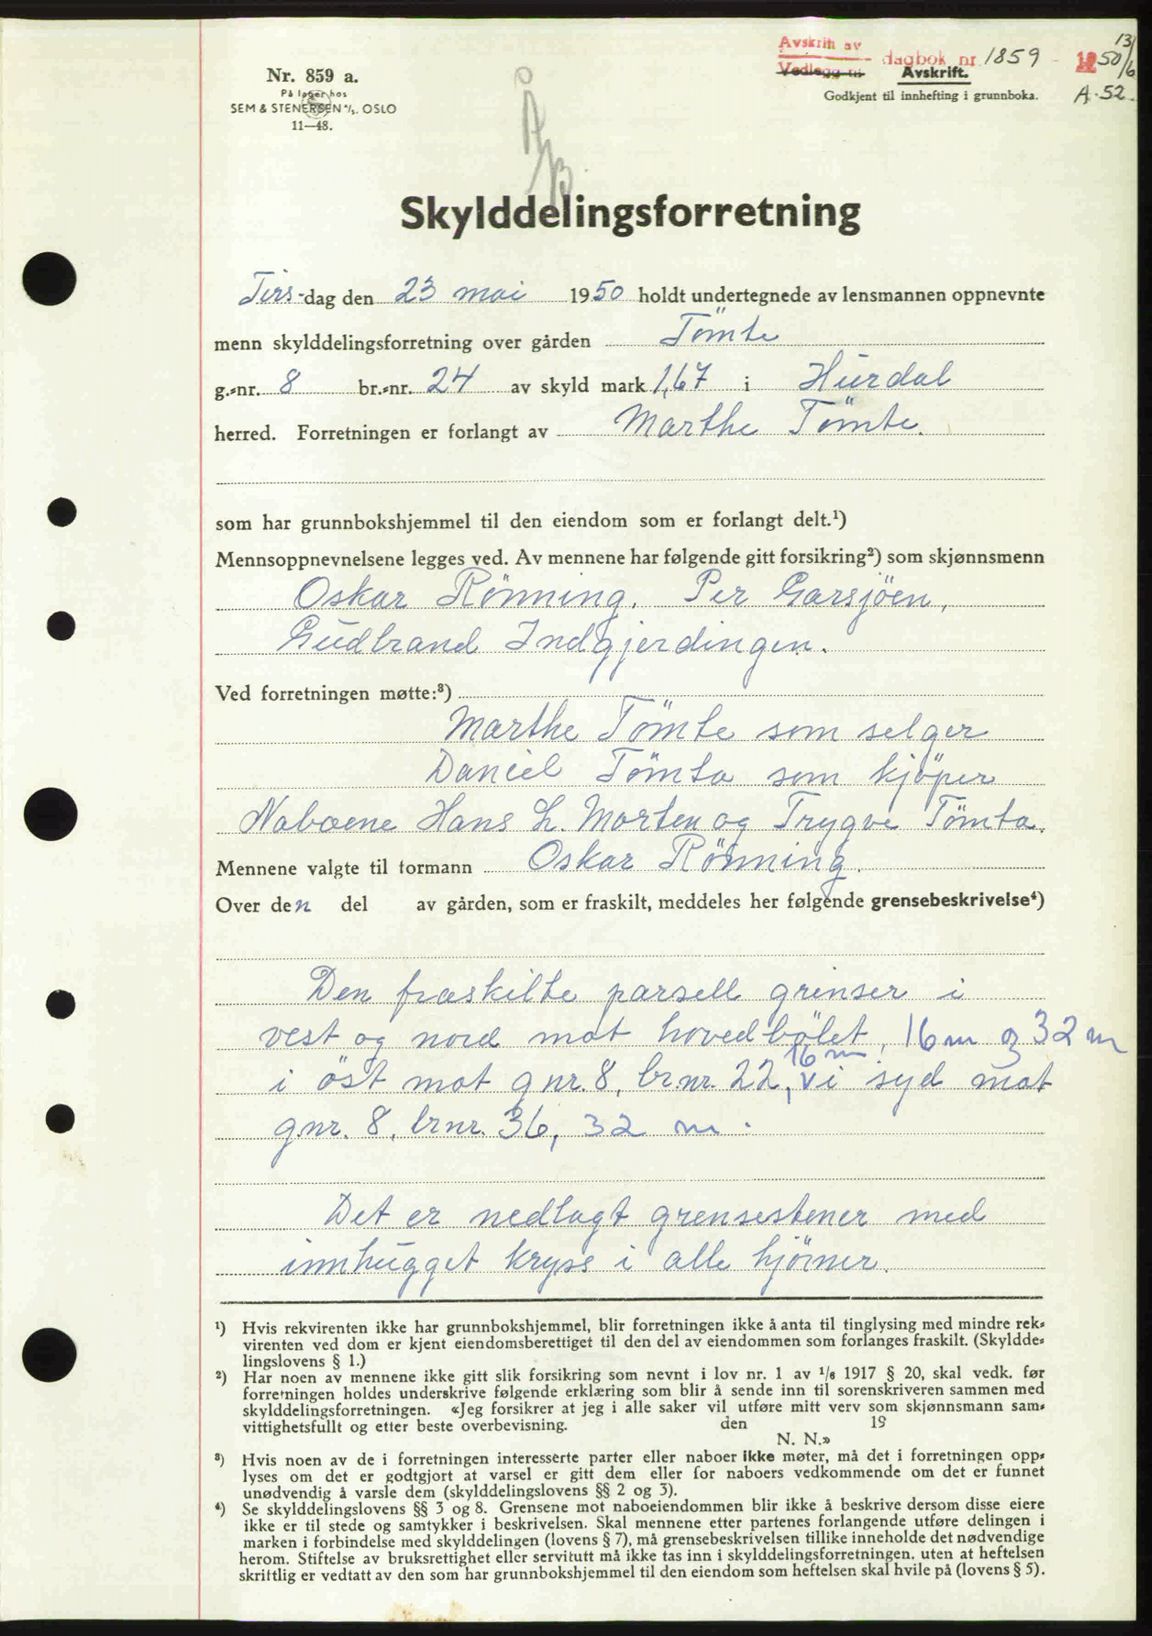 Avskrift av
Vedlegg nr. dagbok nr. 1859 - 1950 13/6
Nr. 859 a.
Avskrift.
På lager hos
Godkjent til innhefting i grunnboka. A-52.
SEM & STENERSEN A/S. OSLO
11—48.
Å/B
Skylddelingsforretning
Tirs-dag den 23 mai 1950 holdt undertegnede av lensmannen oppnevnte
menn skylddelingsforretning over gården Tömte
g.-nr. 8 br.-nr. 24 av skyld mark 1,67 i Hurdal
herred. Forretningen er forlangt av Marthe Tömte.
som har grunnbokshjemmel til den eiendom som er forlangt delt.¹)
Mennsoppnevnelsene legges ved. Av mennene har følgende gitt forsikring²) som skjønnsmenn
Oskar Rönning. Per Garsjöen,
Gudbrand Indgjerdingen.
Ved forretningen møtte:³)
Marthe Tömte som selger
Daniel Tömta som kjöper
Naboene Hans L. Morten og Trygve Tömta.
Mennene valgte til formann Oskar Rönning.
Over den del av gården, som er fraskilt, meddeles her følgende grensebeskrivelse⁴)
Den fraskilte parsell grenser i
vest og nord mot hovedbölet, 16 m og 32 m
i öst mot gnr. 8, brnr. 22, 16 m, i syd mot
gnr. 8, brnr. 36, 32 m.
Det er nedlagt grensestener med
innhugget kryss i alle hjörner.
¹) Hvis rekvirenten ikke har grunnbokshjemmel, blir forretningen ikke å anta til tinglysing med mindre rek-
virenten ved dom er kjent eiendomsberettiget til den del av eiendommen som forlanges fraskilt. (Skyldde-
lingslovens § 1.)
²) Har noen av mennene ikke gitt slik forsikring som nevnt i lov nr. 1 av 1/6 1917 § 20, skal vedk. før
forretningen holdes underskrive følgende erklæring som blir å sende inn til sorenskriveren sammen med
skylddelingsforretningen. «Jeg forsikrer at jeg i alle saker vil utføre mitt verv som skjønnsmann sam-
vittighetsfullt og etter beste overbevisning. den 19
N. N.»
³) Hvis noen av de i forretningen interesserte parter eller naboer ikke møter, må det i forretningen opp-
lyses om det er godtgjort at varsel er gitt dem eller for naboers vedkommende om det er funnet
unødvendig å varsle dem (skylddelingslovens §§ 2 og 3).
⁴) Se skylddelingslovens §§ 3 og 8. Grensene mot naboeiendommen blir ikke å beskrive dersom disse eiere
ikke er til stede og samtykker i beskrivelsen. Skal mennene etter partenes forlangende utføre delingen i
marken i forbindelse med skylddelingen (lovens § 7), må grensebeskrivelsen tillike inneholde det nødvendige
herom. Stiftelse av bruksrettighet eller servitutt må ikke tas inn i skylddelingsforretningen, uten at heftelsen
skriftlig er vedtatt av den som har grunnbokshjemmel til den eiendom som heftelsen skal hvile på (lovens § 5).